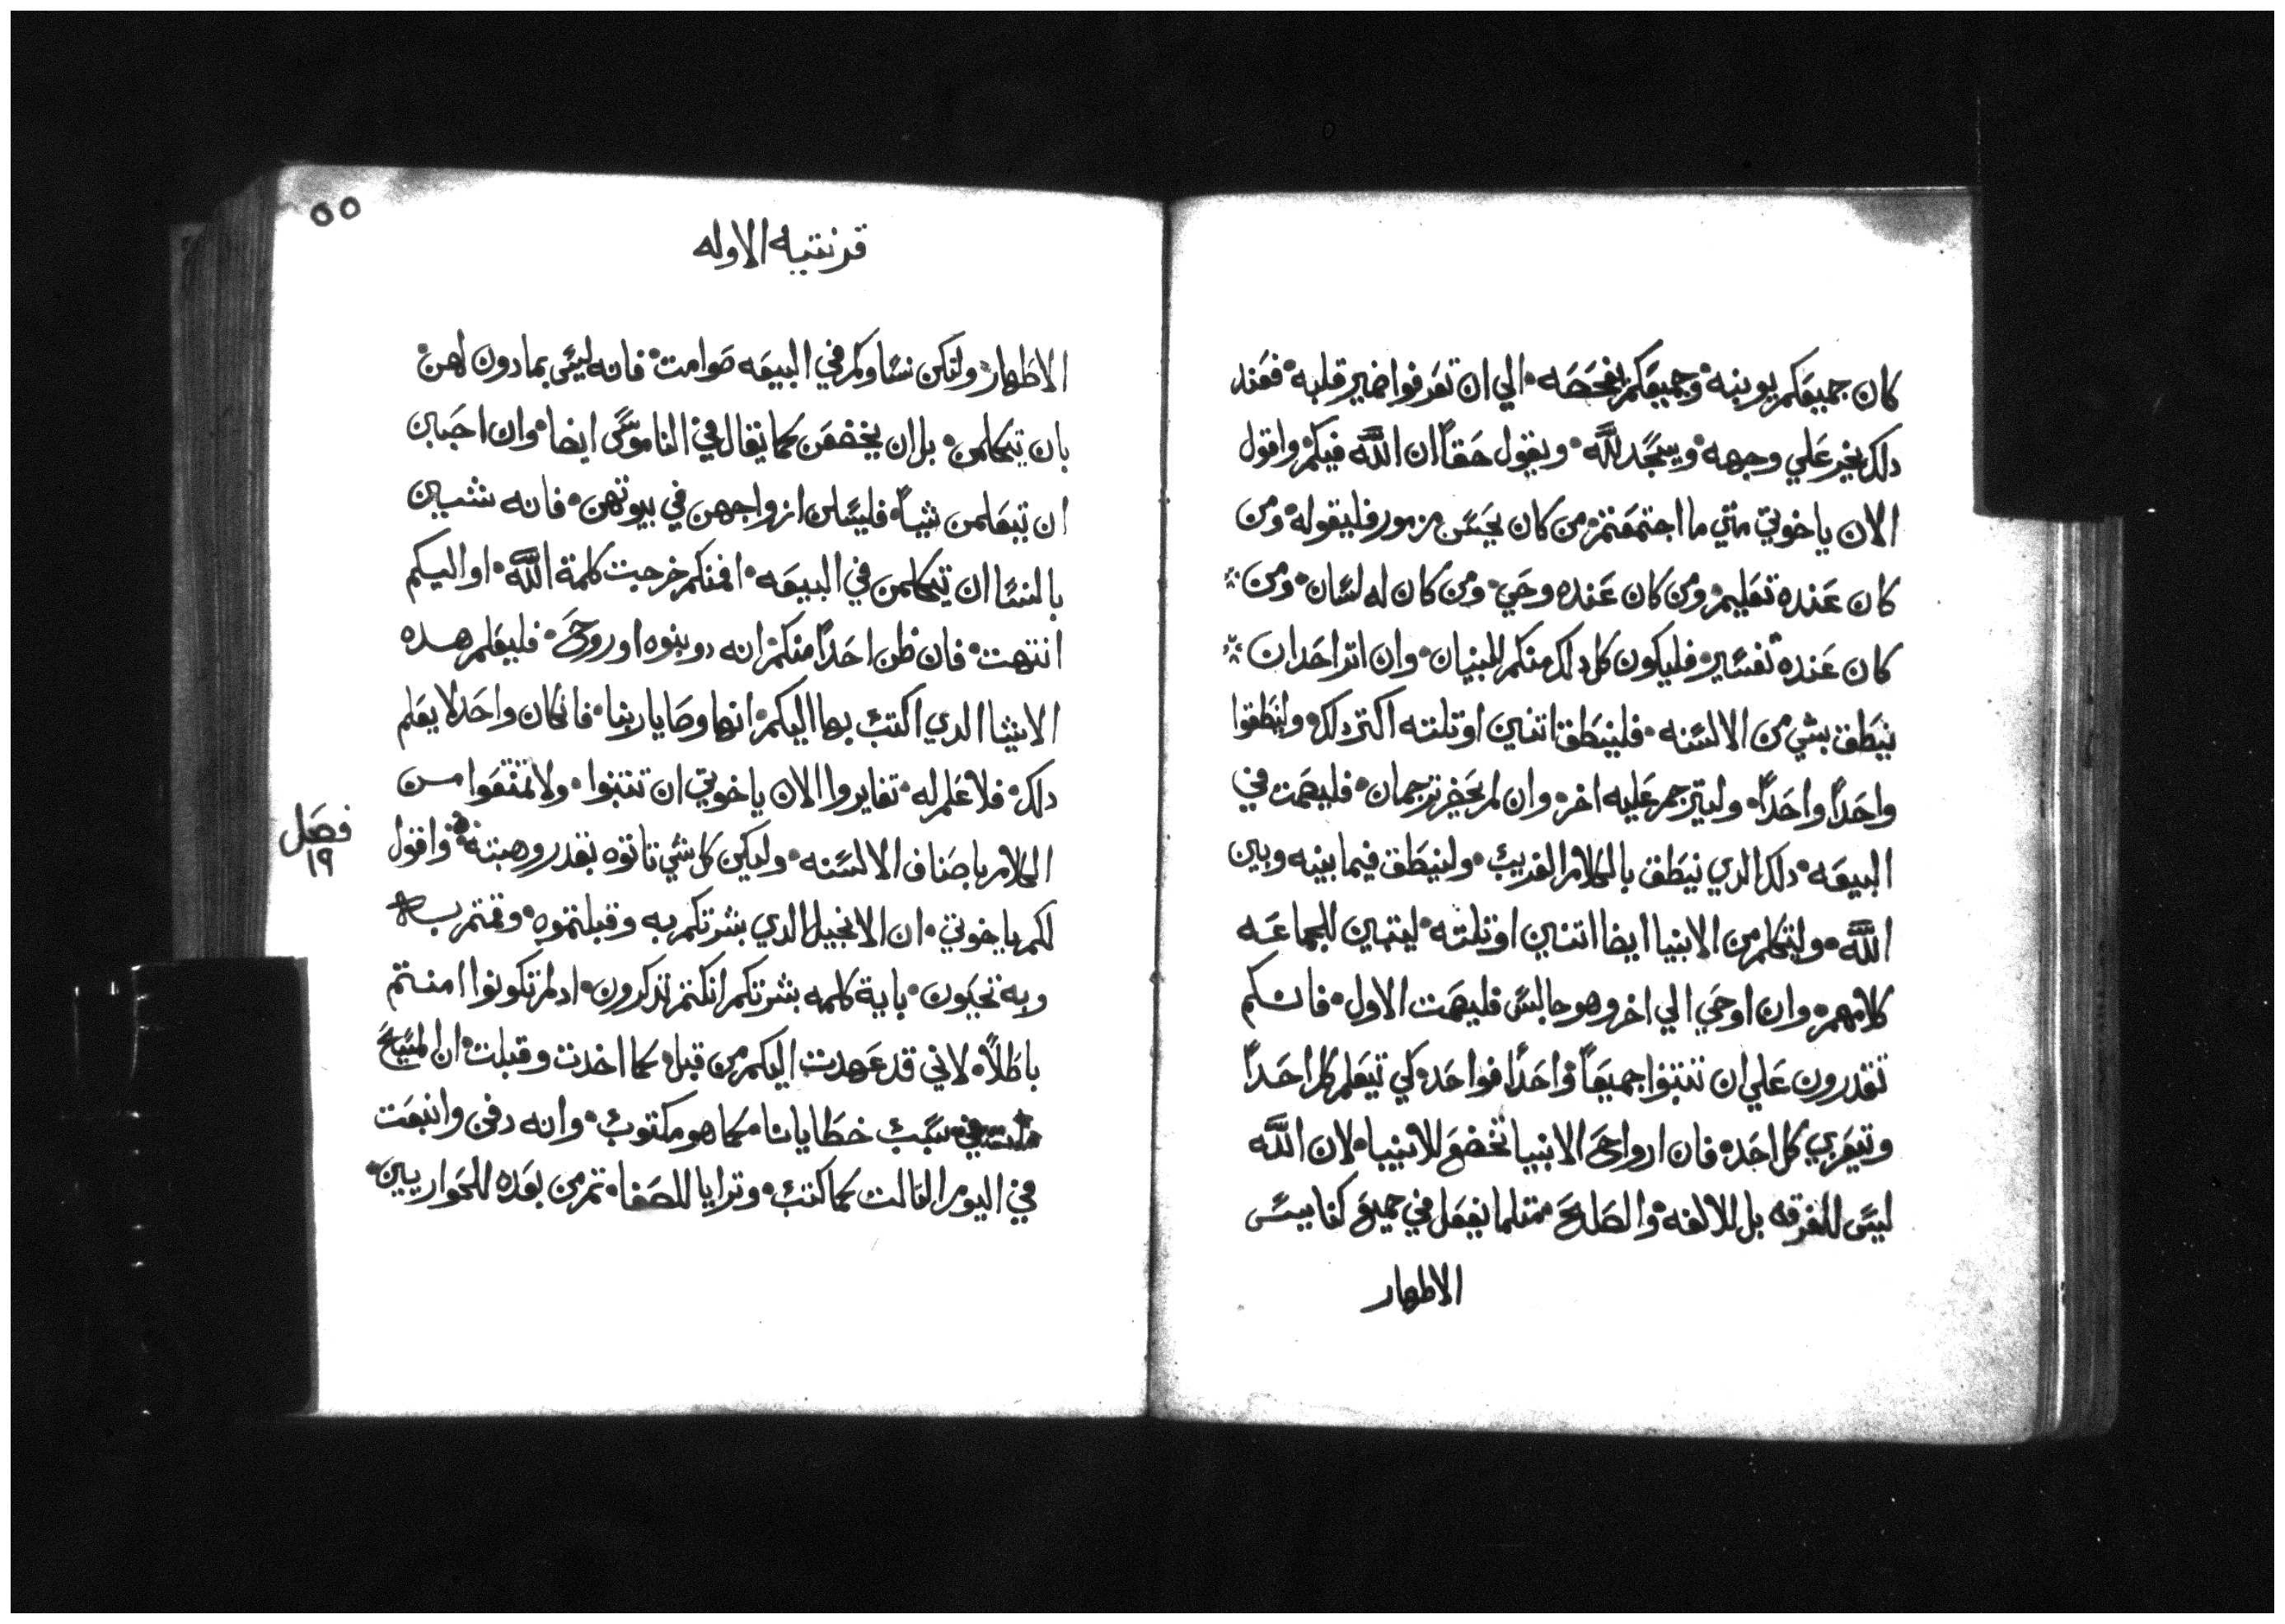 كان جميعكم يوبنه وجميعكم يفحصه الي ان تعرفوا ضمير قلبه فعند
دلك يخير علي وجهه ويسجد لله ويقول حقاً ان الله فيكم واقول
الان ياخوتي متي ما اجتمعتم من كان يحسن مزمور فليقوله ومن
كان عنده تعليم ومن كان عنده وحي ومن كان له لسان ومن
كان عنده تفسير فليكون كل دلك منكم للبنيان وان اتر احد ان
ينطق بشي من الالسنه فلينطق اتنين او تلته اكتر دلك ولينطقوا
واحداً واحداً وليترجم عليه اخر وان لم يحضر ترجمان فليصمت في
البيعه دلك الدي ينطق بالكلام الغريب ولينطق فيما بينه وبين
الله وليتكلم من الانبيا ايضا اتنين او تلته ليتبين للجماعه
كلامهم وان اوحي الي اخر وهو جالس فليصمت الاول فانكم
تقدرون علي ان تتنبوا جميعاً واحداً فواحد كي تيعلم كل احداً
وتيعزي كل احد فان ارواح الانبيا تخضع للانبيا لان الله
ليس للفرقه بل للالفه والصلح متلما نفعل في جميع كنايس
الاطهار
٥٥
قرنتيه الاوله
الاطهار ولتكن نساوكم في البيعه صوامت فانه ليس بمادون لهن
بان يتكلمن بل ان يخضعن كما يقال في الناموس ايضا وان احببن
ان تيعلمن شياً فليسلن ازواجهن في بيوتهن فانه شين
بالنسا ان يتكلمن في البيعه افمنكم خرجت كلمة الله او اليكم
انتهت فان ظن احداً منكم انه دو نبوه او روح فليعلم هده
الاشيا الدي اكتب بها اليكم انها وصايا ربنا فان كان واحد لا يعلم
دلك فلا علم له تغايروا الان ياخوتي ان تتنبوا ولا تمتنعوا من
الكلام باصناف الالسنه وليكن كل شي تاتوه بقدر وهبته واقول
فصل
١٩
لكم ياخوتي ان الانجيل الدي بشرتكم به وقبلتموه وقمتم ب
وبه تحيون باية كلمه بشرتكم ان كنتم تدكرون اد لم تكونوا امنتم
باطلاً لاني قد عهدت اليكم من قبل كما اخدت وقبلت ان المسيح
سبب خطايانا كما هو مكتوب وانه دفن وانبعت
في اليوم التالت كما كتب وترايا للصفا تم من بعده للحواريين